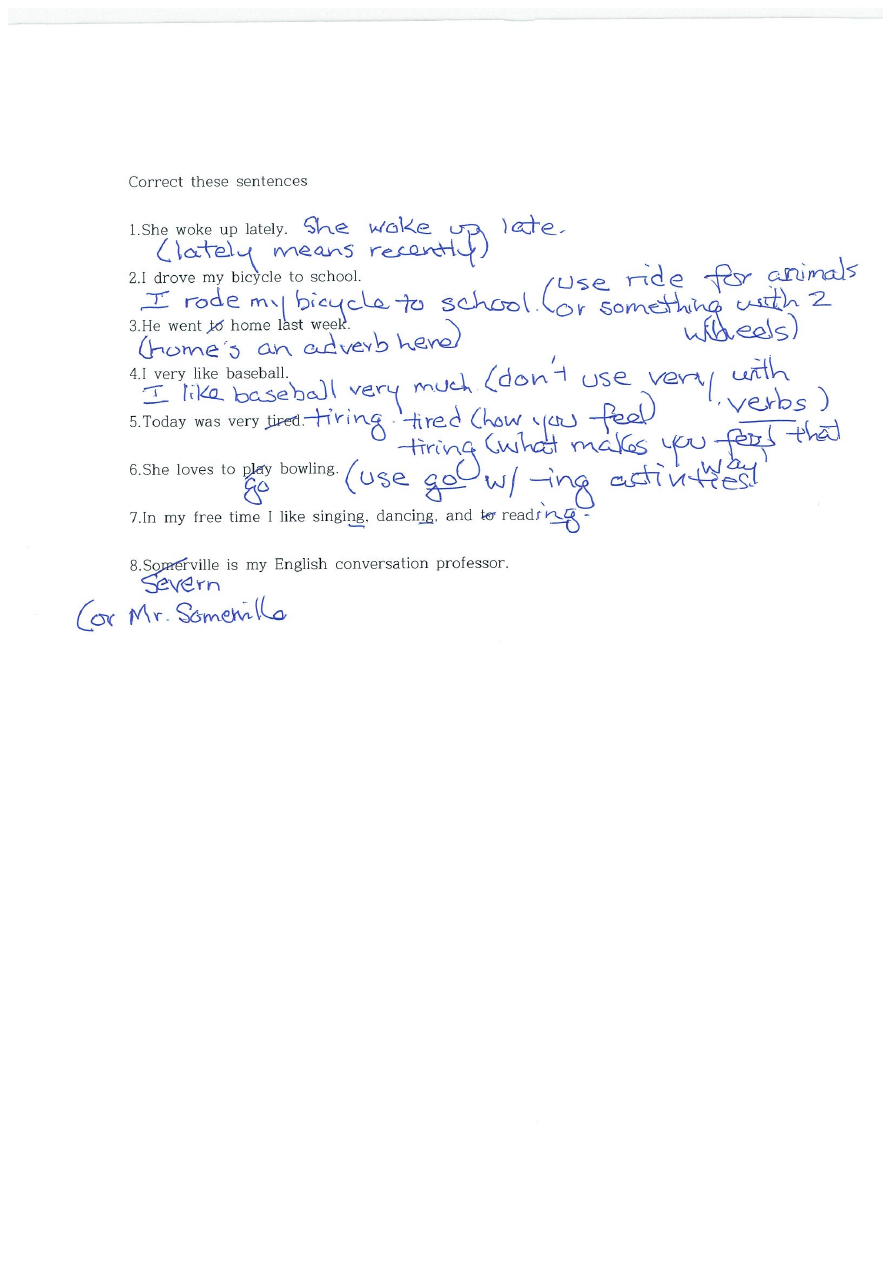 Correct these sentences
1.She woke up lately. She woke up late.
(lately means recently)
2.I drove my bicycle to school. (use ride for animals
I rode my bicycle to school. or something with 2
wheels)
3.He went to home last week.
(home's an adverb here)
4.I very like baseball.
I like baseball very much (don't use very with
verbs)
5.Today was very tired. tiring. tired (how you feel)
tiring (what makes you feel that
way)
6.She loves to play bowling. (use go w/ -ing activities)
go
7.In my free time I like singing, dancing, and to reading.
8.Somerville is my English conversation professor.
Severn
(or Mr. Somerville